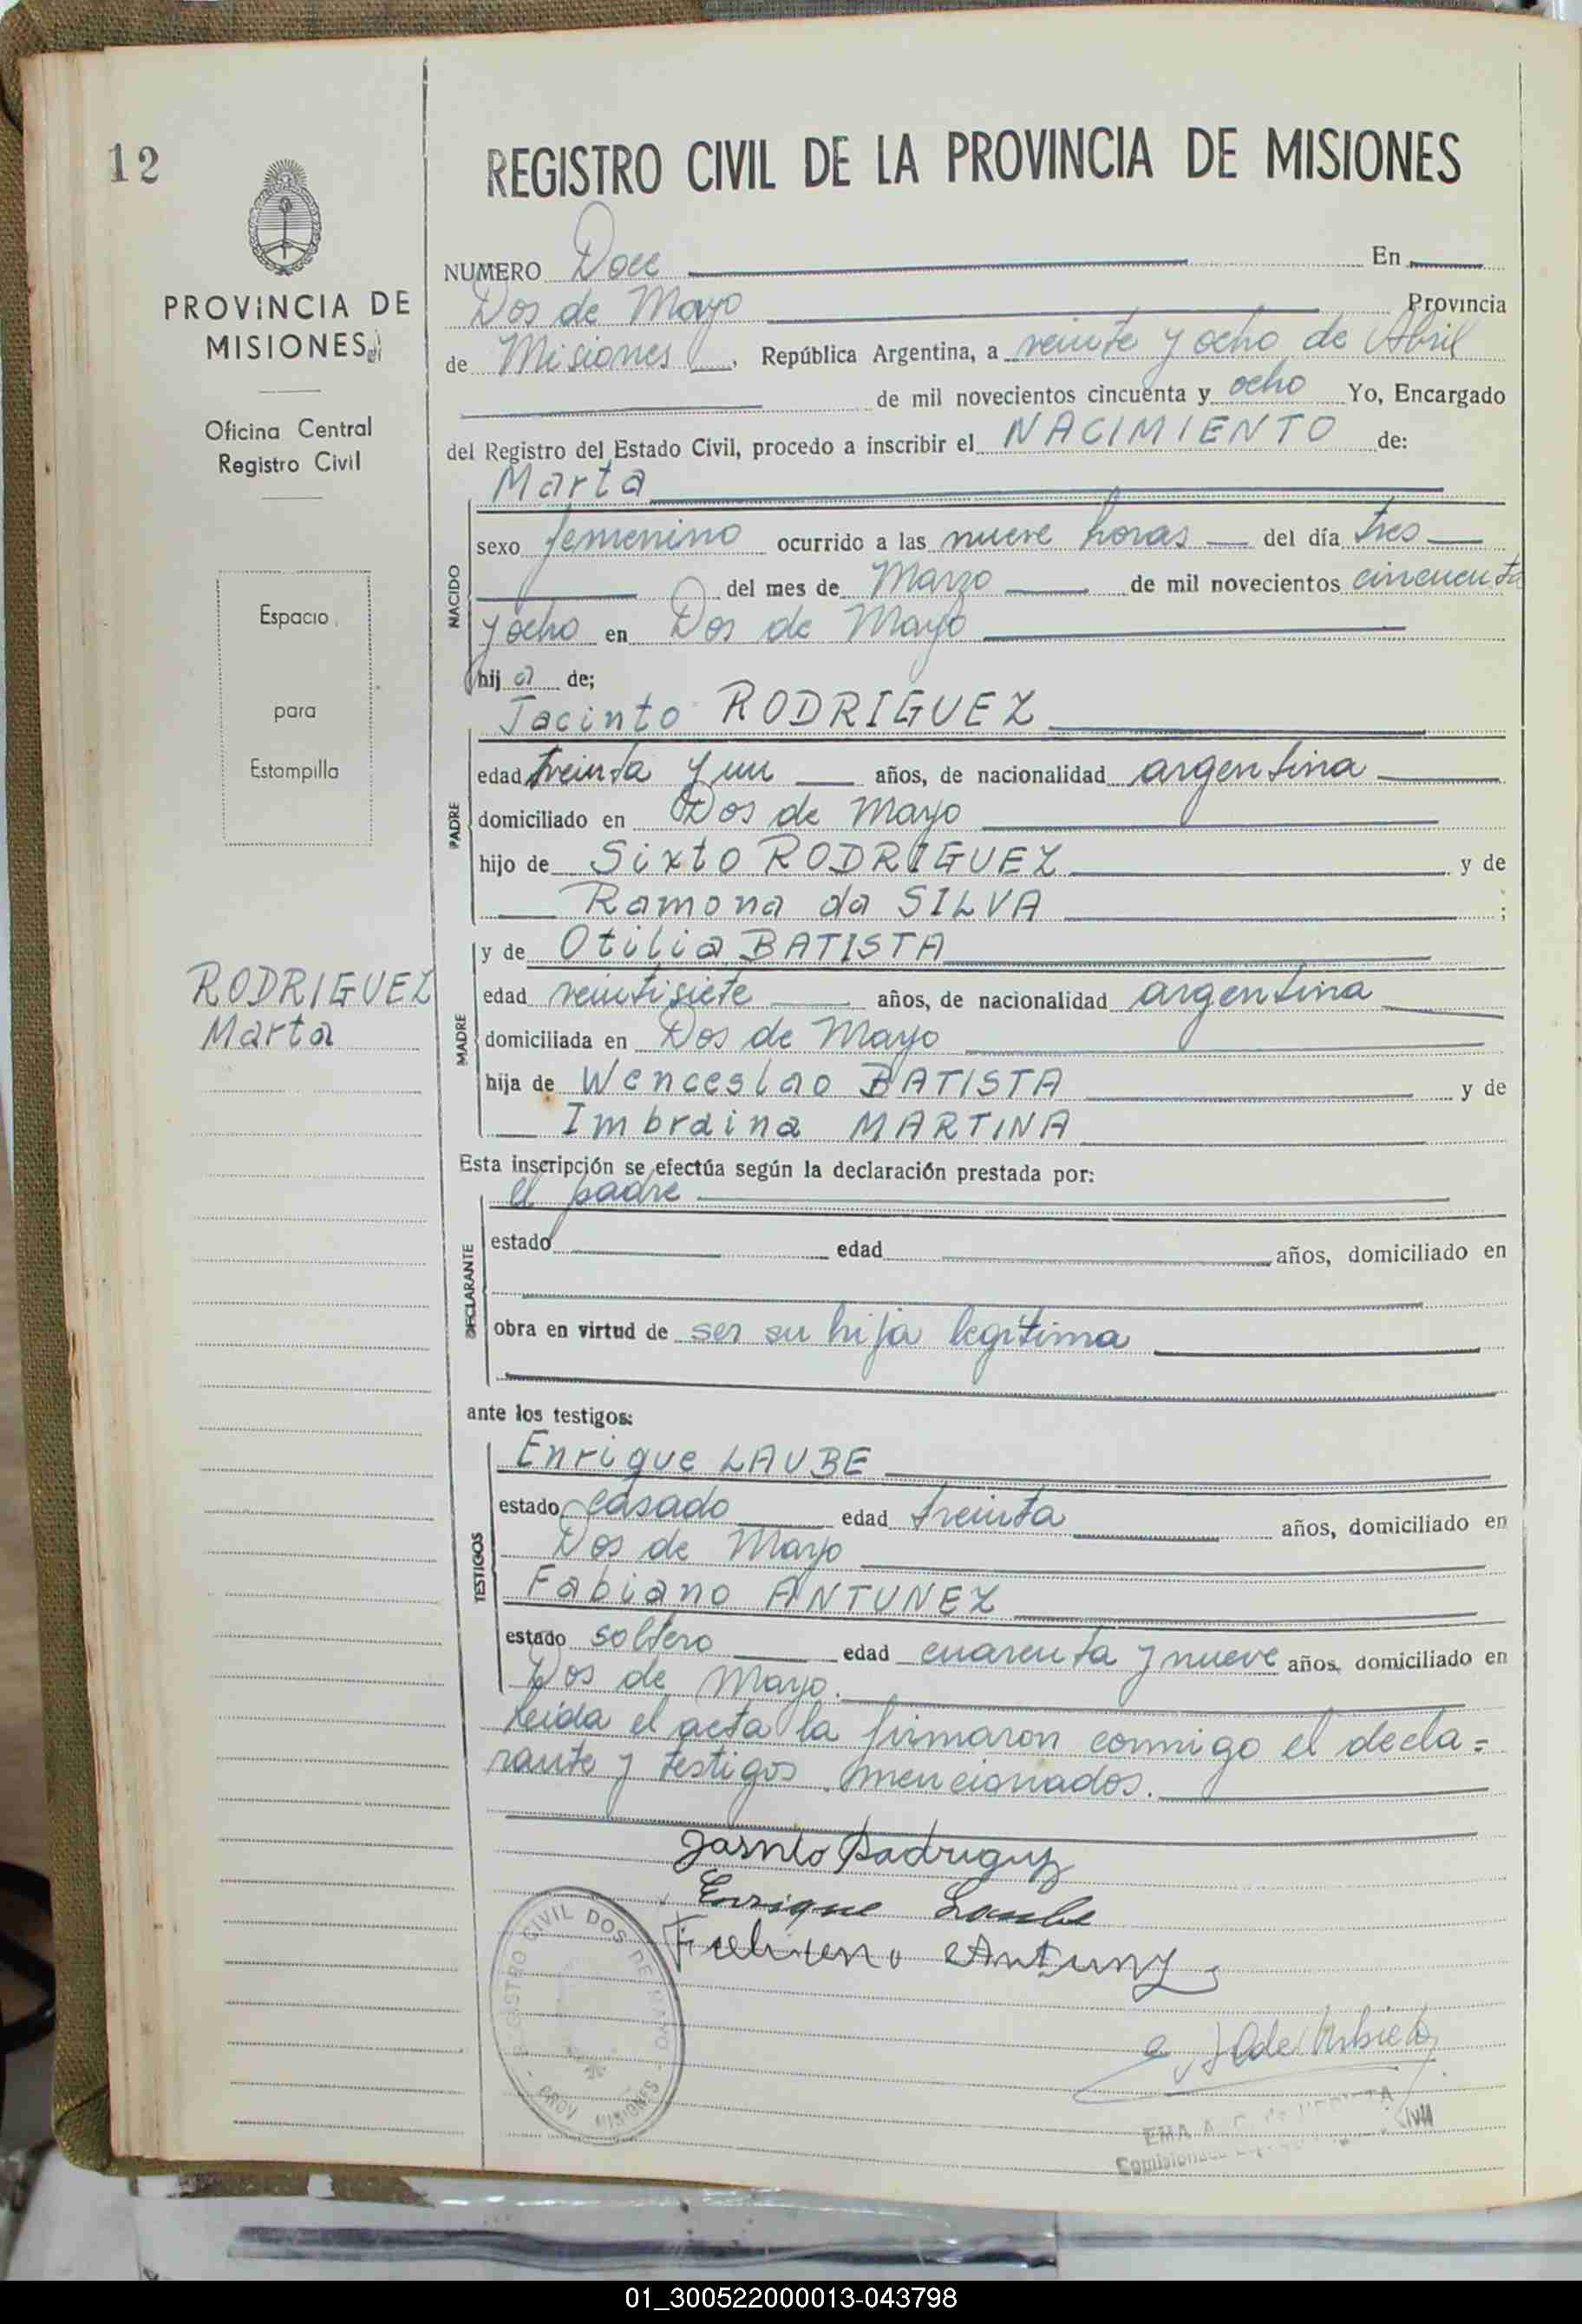 12
PROVINCIA DE
MISIONES
Oficina Central
Registro Civil
Espacio
para
Estampilla
RODRIGUEZ
Marta
REGISTRO CIVIL DE LA PROVINCIA DE MISIONES
NUMERO Doce En
Dos de Mayo Provincia
de Misiones, República Argentina, a veinte y ocho de Abril
de mil novecientos cincuenta y ocho Yo, Encargado
del Registro del Estado Civil, procedo a inscribir el NACIMIENTO de:
Marta
NACIDO
sexo femenino ocurrido a las nueve horas del día tres
del mes de Marzo de mil novecientos cincuenta
y ocho en Dos de Mayo
hija de;
Jacinto RODRIGUEZ
PADRE
edad treinta y un años, de nacionalidad argentina
domiciliado en Dos de Mayo
hijo de Sixto RODRIGUEZ y de
Ramona da SILVA ;
y de Otilia BATISTA
MADRE
edad veintisiete años, de nacionalidad argentina
domiciliada en Dos de Mayo
hija de Wenceslao BATISTA y de
Imbraina MARTINA
Esta inscripción se efectúa según la declaración prestada por:
el padre
DECLARANTE
estado edad años, domiciliado en
obra en virtud de ser su hija legítima
ante los testigos:
TESTIGOS
Enrique LAUBE
estado casado edad treinta años, domiciliado en
Dos de Mayo
Fabiano ANTUNEZ
estado soltero edad cuarenta y nueve años, domiciliado en
Dos de Mayo.
Leída el acta la firmaron conmigo el decla=
rante y testigos mencionados.
Enrique Laube
REGISTRO CIVIL DOS DE MAYO - PROV. MISIONES -
01_300522000013-043798